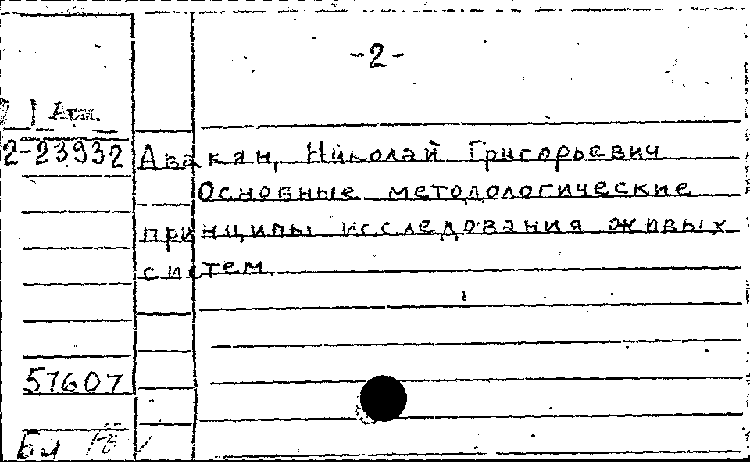 -2-
2-23932 Авакян, Николай Григорьевич
Основные методологические
принципы исследования живых
систем
57607